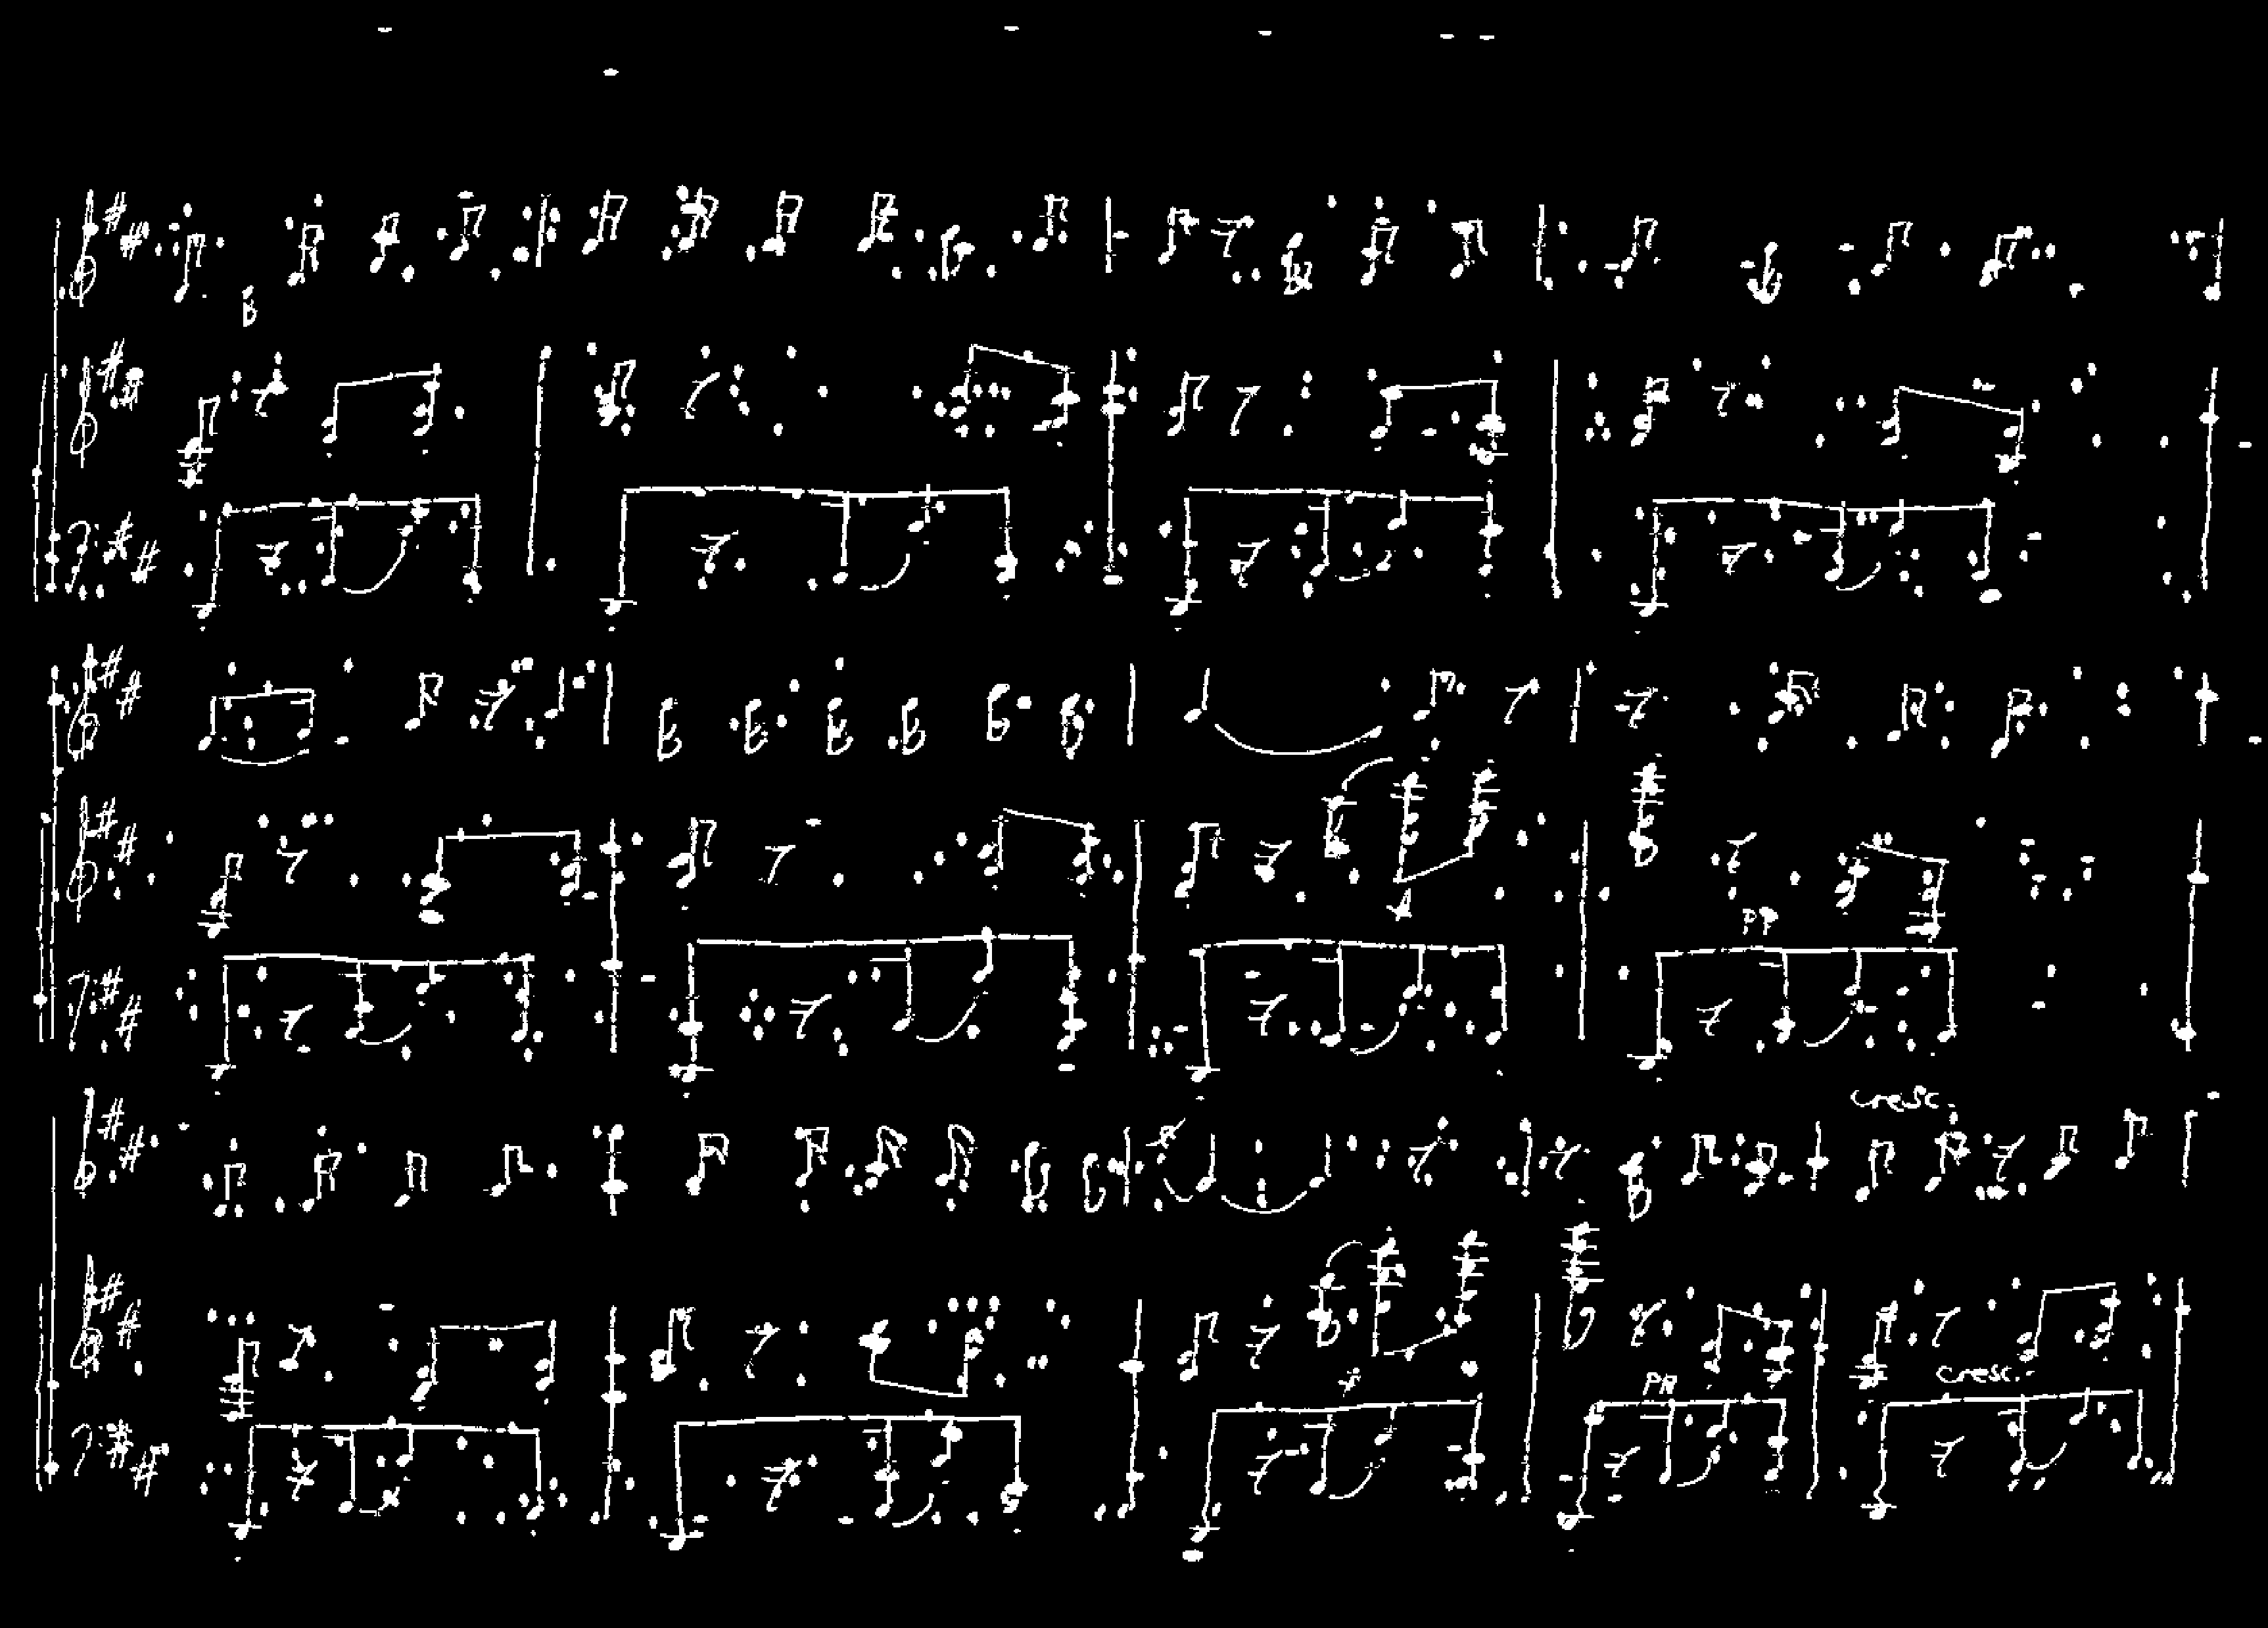 cresc.
PP
cresc.